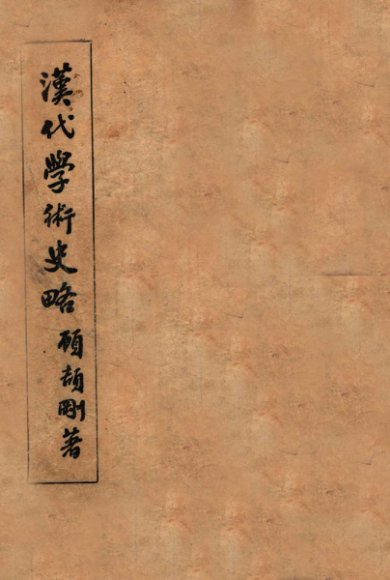 漢代學術史略
顧頡剛著